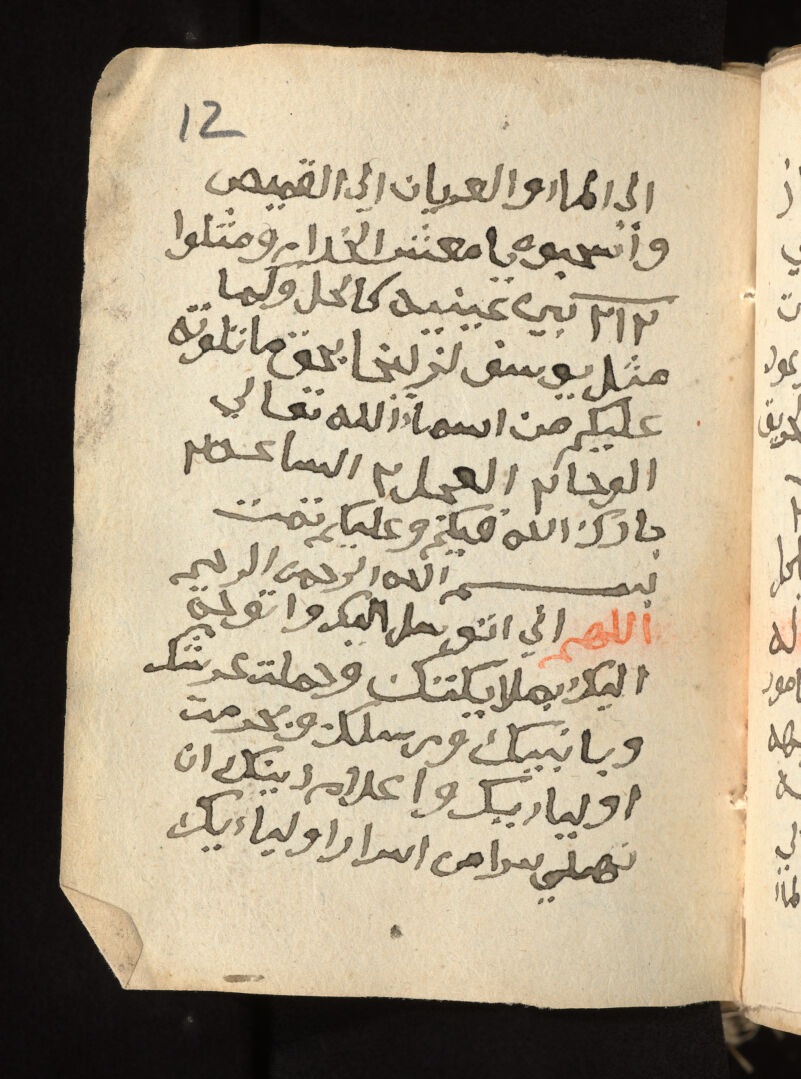 12
الى الماء والعريان الى القميص
وأنسحبوه يا معشر الخدام ومثلوا
٢١٢ بين عينيه كالحل وكما
مثل يوسف لزليخا بحق ما تلوته
عليكم من اسماء الله تعالى
الوحا٢ العجل٢ الساعة٢
بارك الله فيكم وعليكم تمت
بسم الله الرحمن الرحيم
اللهم اني اتوسل اليك واتوجه
اليك بملايكتك وحملت عرشك
وبانبيك ورسلك وبحرمت
اولياييك واعلام دينك ان
تهبلي سرا من اسرار اولياءيك